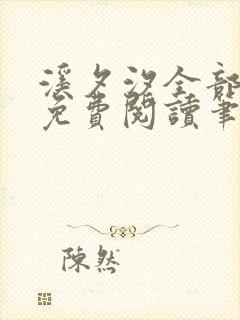 溪夕汐全部
免費閱讀筆
陳然